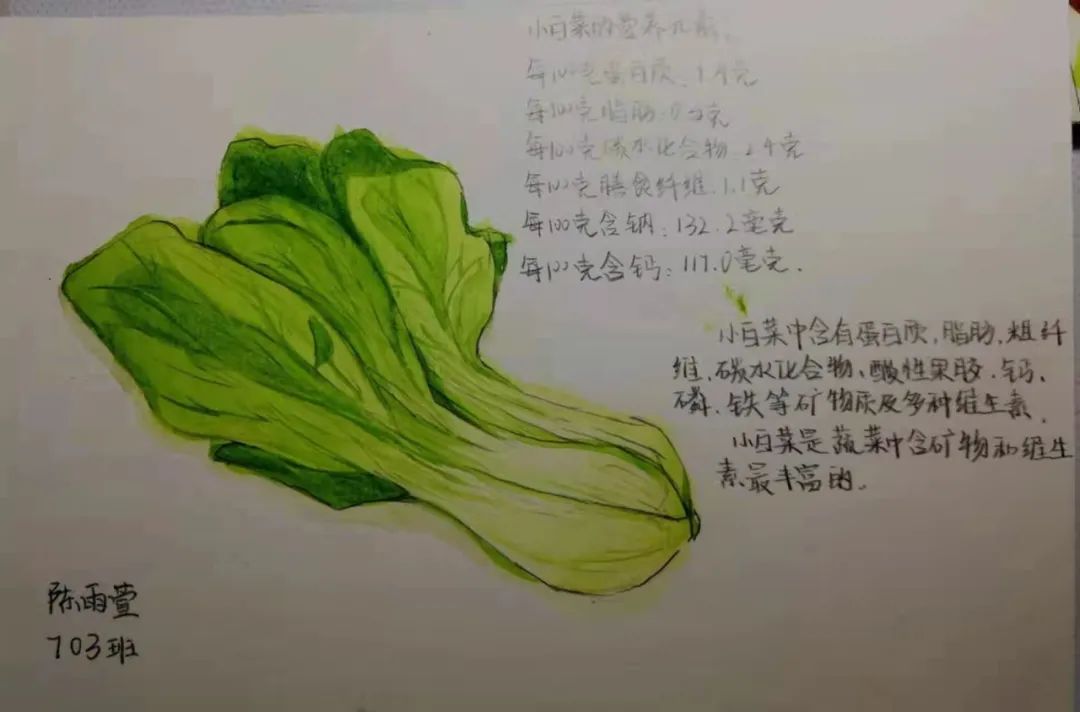 小白菜的营养元素.
每100克蛋白质:1.4克
每100克脂肪:0.3克
每100克碳水化合物:2.4克
每100克膳食纤维:1.1克
每100克含钠:132.2毫克
每100克含钙:117.0毫克.
小白菜中含有蛋白质,脂肪,粗纤
维,碳水化合物、酸性果胶、钙、
磷、铁等矿物质及多种维生素.
小白菜是蔬菜中含矿物和维生
素最丰富的.
陈雨萱
703班